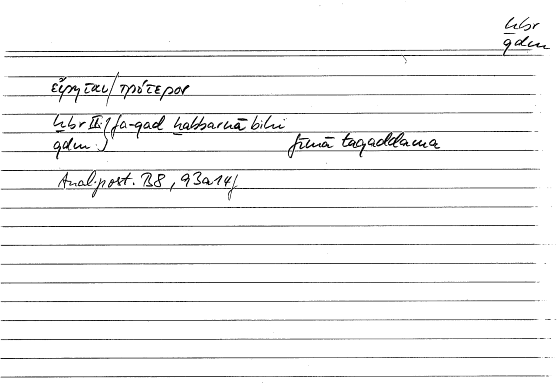 ḫbr
qdm
εἴρηται / πρότερον
ḫbr II: } fa-qad ḫabbarnā bihī
qdm : } fīmā taqaddama
Anal. post. B8, 93a14f